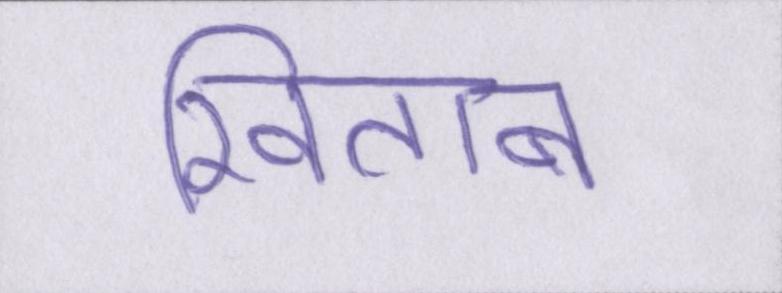 खिताब